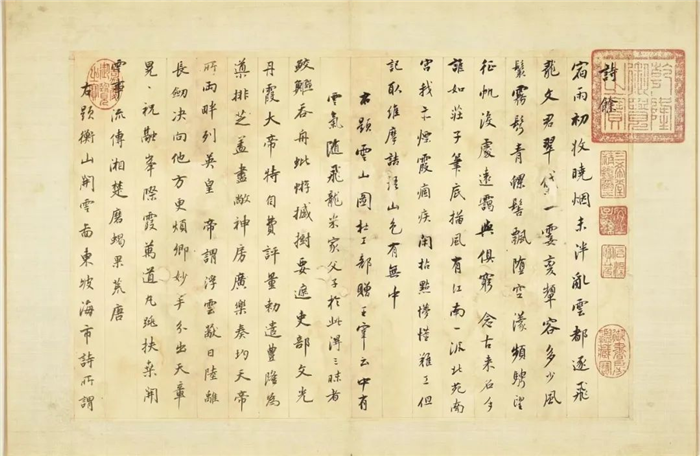 詩餘
宿雨初收曉烟未泮亂雲都逐飛
龍文君翠黛一霎變顰容多少風
鬟霧鬢青螺髻飄墮空濛頻騁望
征帆沒處遠靄與俱窮 念古來名手
誰如莊子筆底描風有江南一派北苑南
宮我亦煙霞痼疾閑拈點慘憯難工但
記取維摩詰語山色有無中
右題雲山圖杜工部贈王宰云中有
雲氣隨飛龍米家父子於此得三昧者
鮫鱷吞舟蚍蜉撼樹要遮吏部文光
丹霞大帝特自費評量勅遣豐隆為
導排芝蓋盡敞神房廣樂奏均天帝
所兩畔列英皇 帝謂浮雲蔽日陸離
長劒決向他方更煩卿妙手分出天章
晃祝融峯際霞萬道丸跳扶桒開
雲事流傳湘楚磨蝎果荒唐
右題衡山開雲圖東坡海市詩所謂